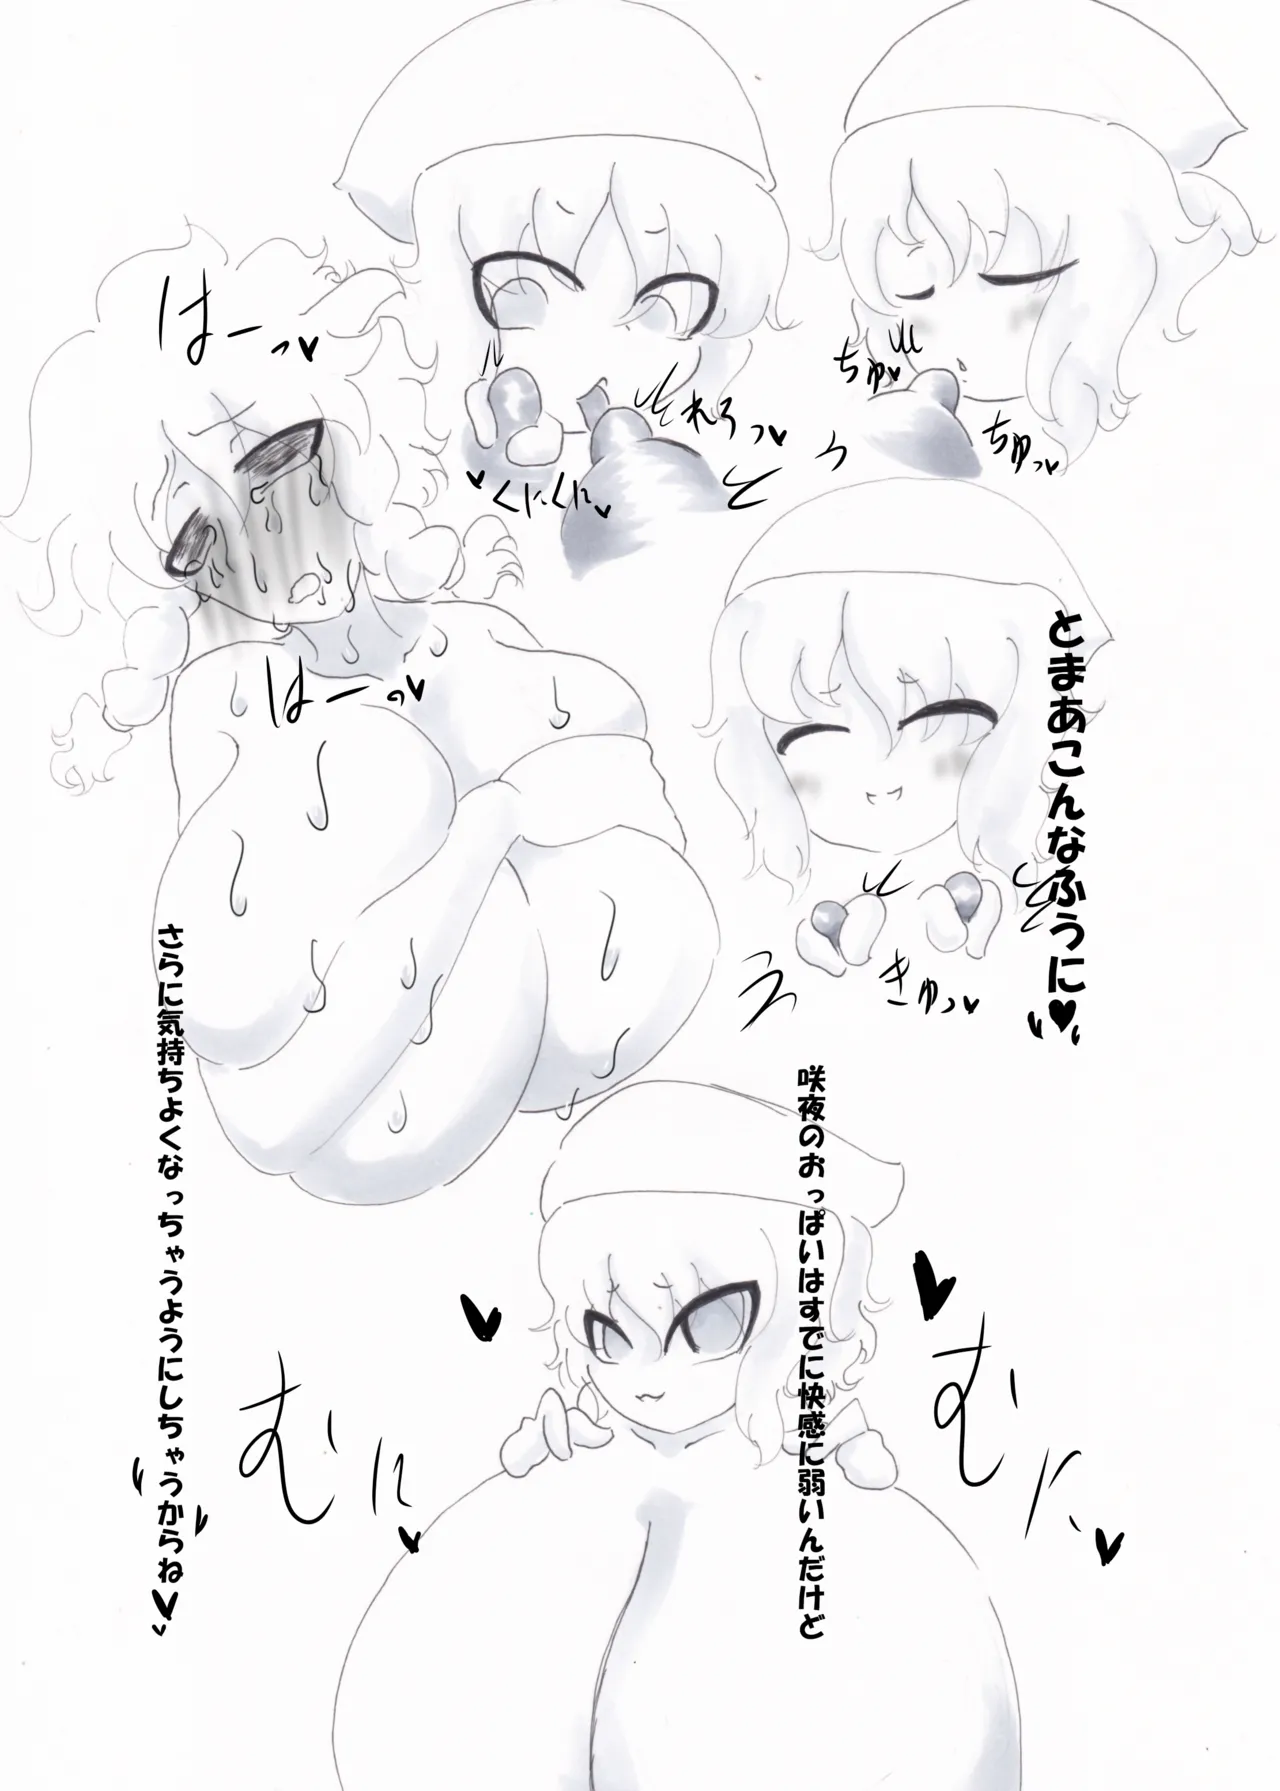 ちゅ♥
ちゅっ♥
それろっ♥
くにくに♥
はーっ♥
とまあこんなふうに♥
きゅっ♥
はーっ♥
咲夜のおっぱいはすでに快感に弱いんだけど
むに♥
むに♥
さらに気持ちよくなっちゃうようにしちゃうからね♥